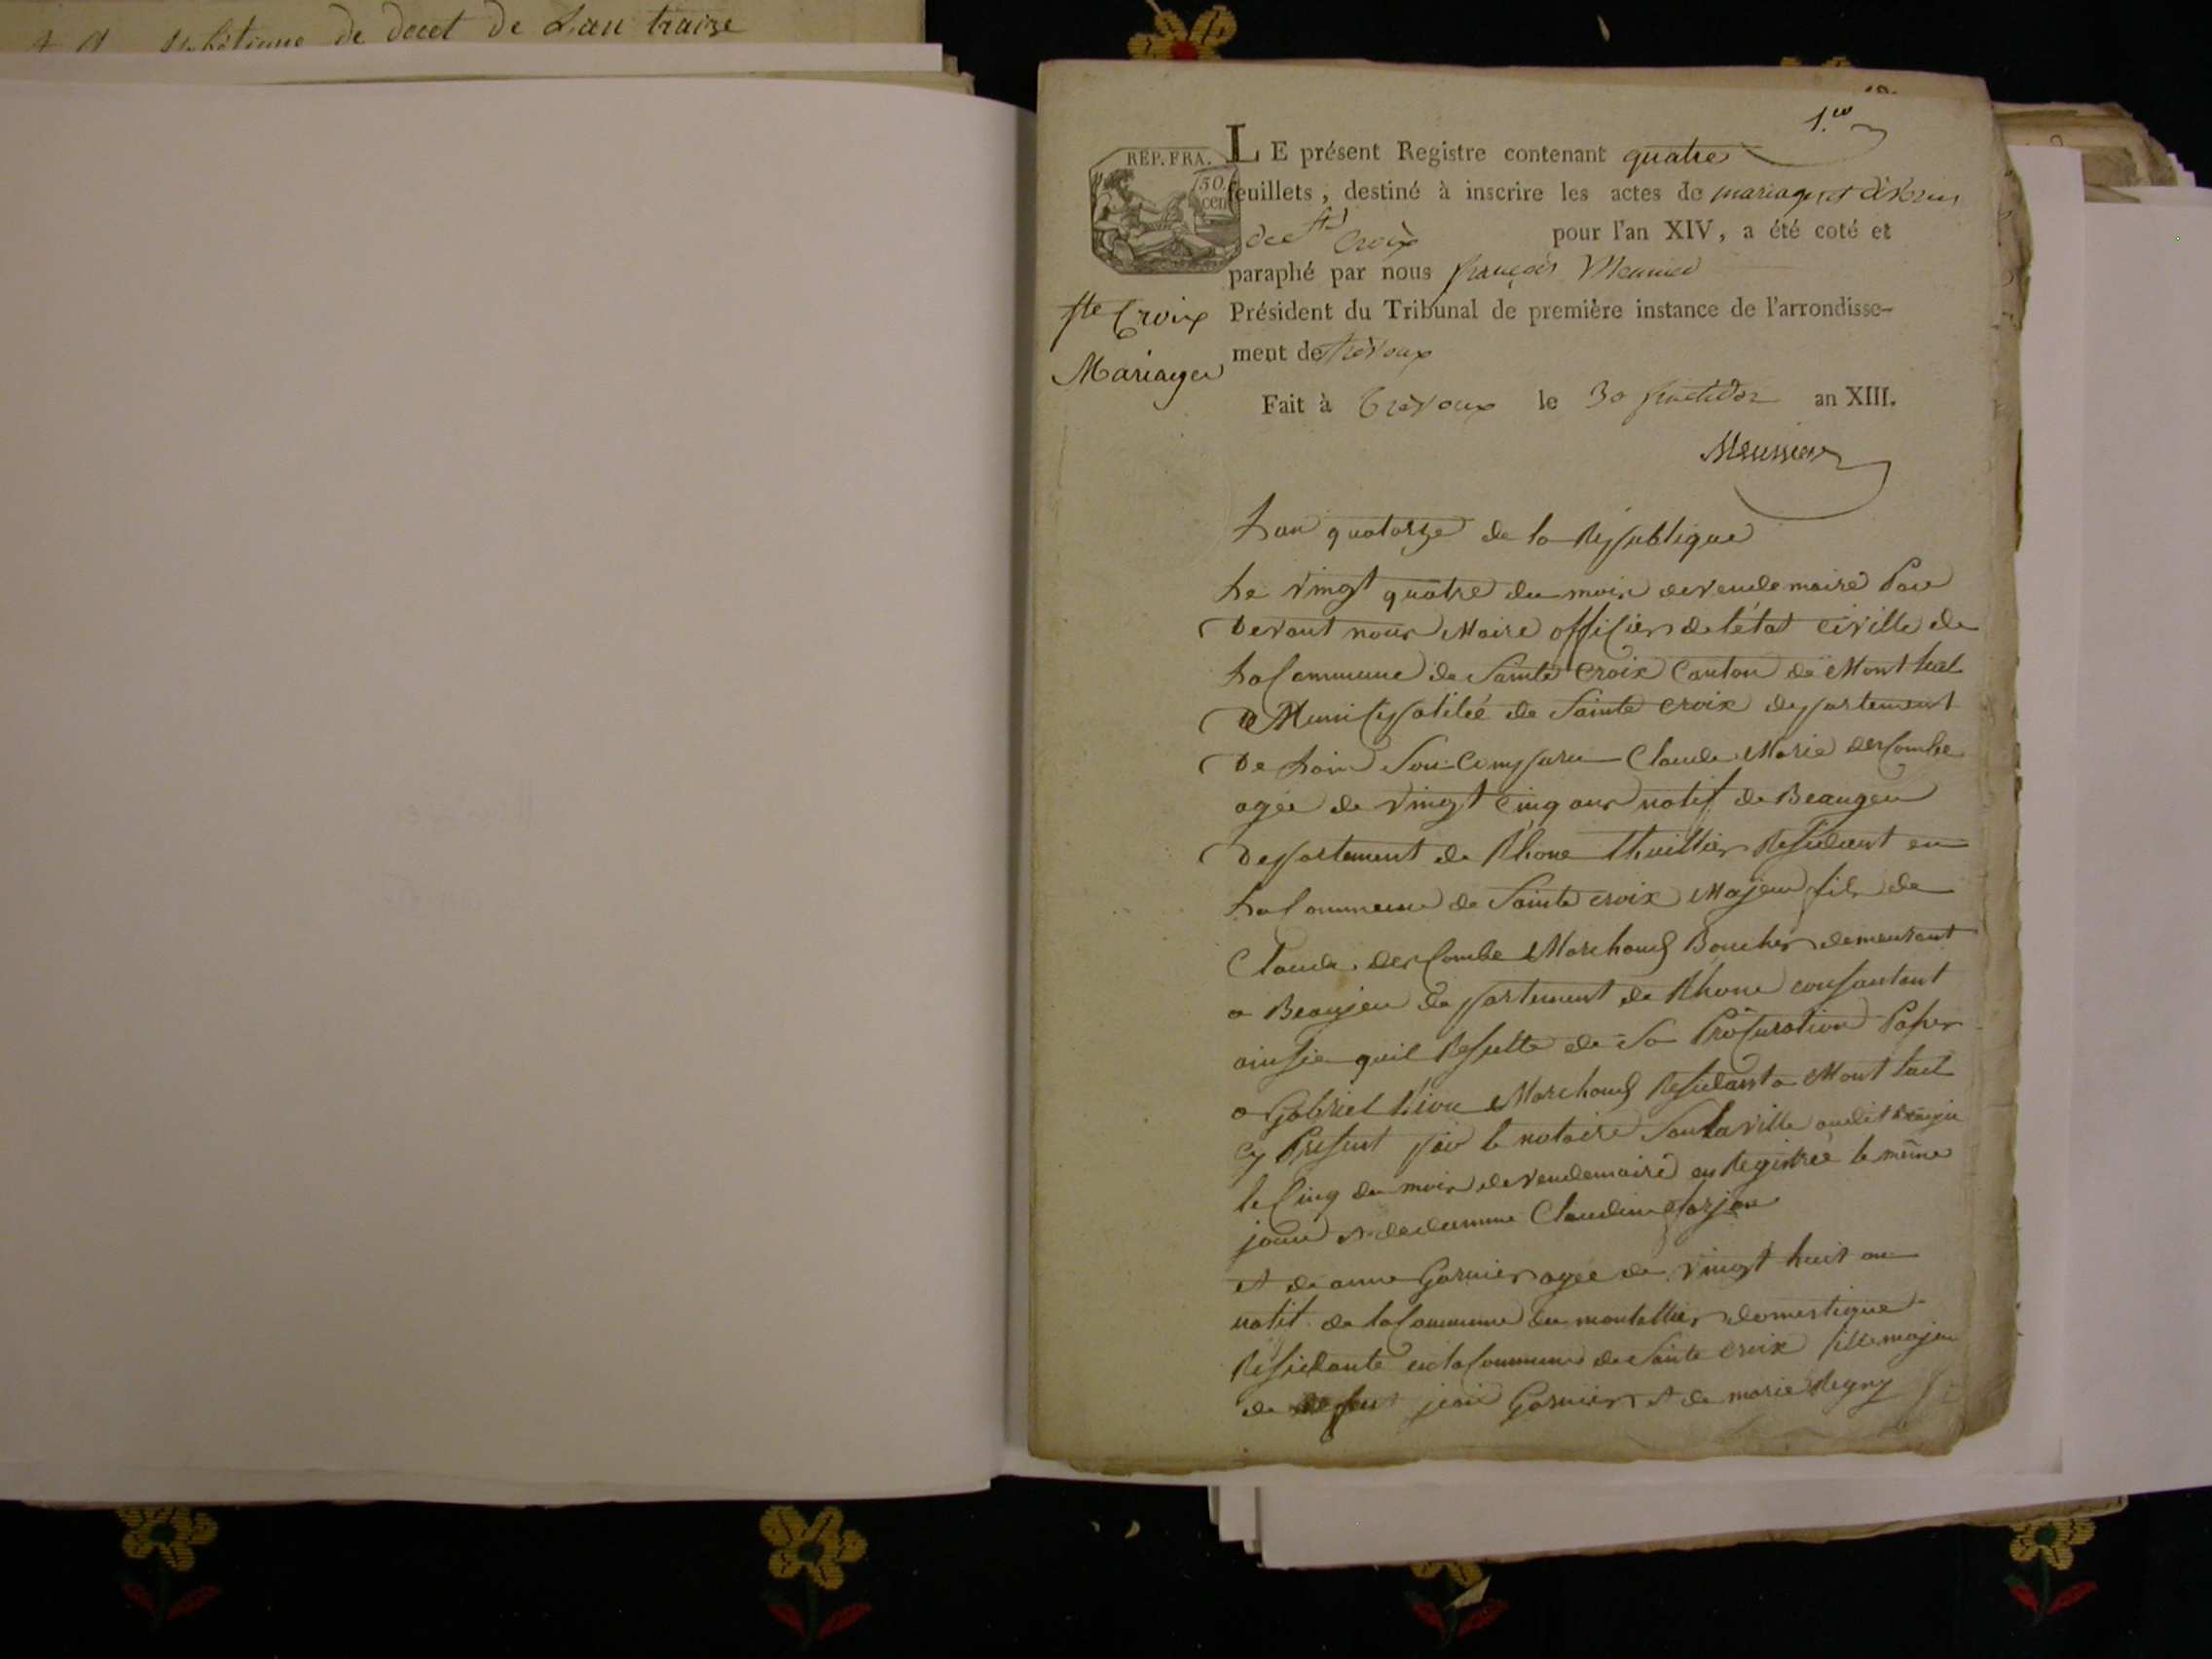 de decet de Lan traize
1.er
REP. FRA.
50 cen
LE présent Registre contenant quatre
feuillets, destiné à inscrire les actes de mariages et divorces
de Ste Croix pour l'an XIV, a été coté et
paraphé par nous françois Meunier
Président du Tribunal de première instance de l'arrondisse-
ment de trévoux
Ste Croix
Mariages
Fait à Trévoux le 30 fructidor an XIII.
Meunier
Lan quatorze de la Republique
Le vingt quatre du mois de vendemaire Par
Devant nous Maire officier de l'état civille de
La Commune de Sainte Croix Canton de Mont luel
De Municipalitée de Sainte croix departement
De Lain Son Comparu Claude Marie descombe
agée de vingt cinq ans natif de Beaugeu
Departement de Rhone thuillier Residant en
La Commune de Sainte croix Majeur fils de
Claude descombe Marchand Boucher demeurant
a Beaujeu departement de Rhone consantant
ainsie quil Resulte de Sa Procuration Paser
a Gabriel Marchand Residant a Mont luel
cy Present par le notaire Sanlaville audit Beauju
le Cinq du mois de vendemaire en Registrée le même
jour et de deumme Claudine sarjon
et de anne Garnier agée de vingt huit an
natif de la Commune du montellier domestique
Residante en la Commune de Sainte croix fille majeur
de feut jean Garnier et de marie Regny